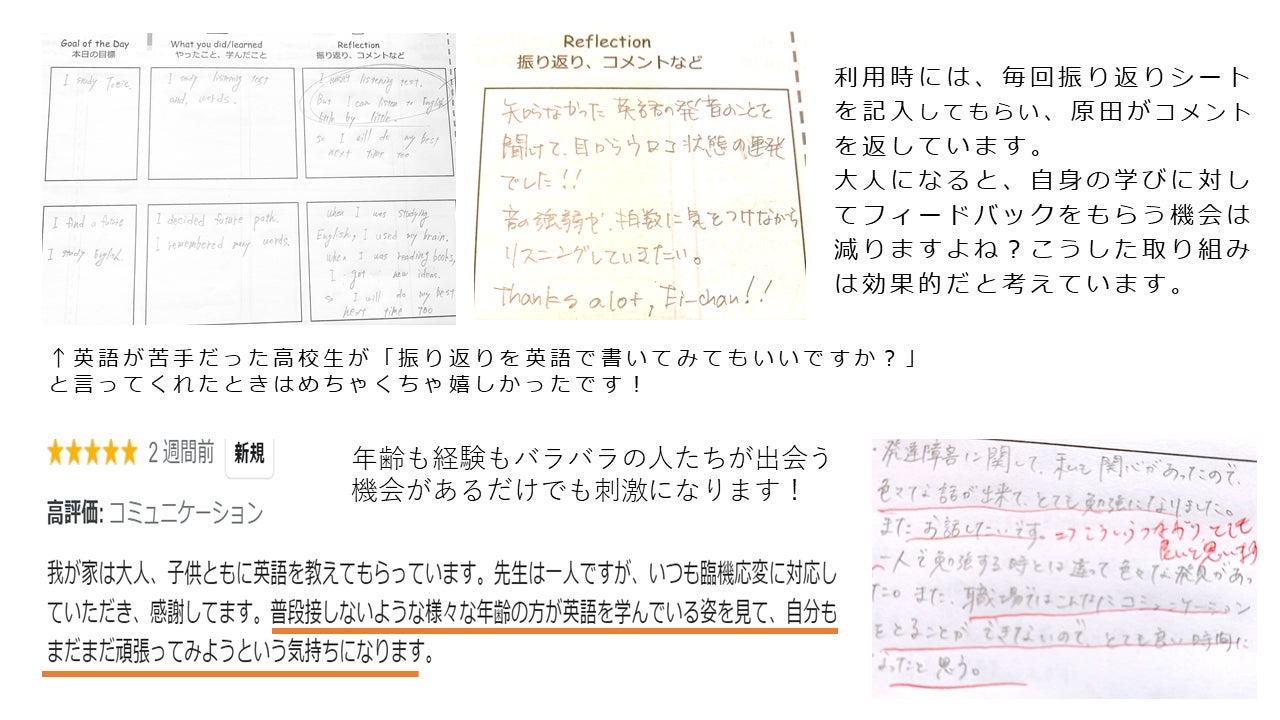 Goal of the Day
本日の目標
What you did/learned
やったこと、学んだこと
Reflection
振り返り、コメントなど
I study Toeic.
I study listening test
and, words.
I want listening test.
But I can listen to English
little by little.
so I will do my best
next time too
I find a future
I study English.
I decided future path.
I remembered many words.
when I was studying
English, I used my brain.
when I was reading books,
I got new ideas.
so I will do my best
next time too
Reflection
振り返り、コメントなど
知らなかった英語の発音のことを
聞けて、目からウロコ状態の連発
でした!!
音の強弱や、拍数に気をつけながら
リスニングしていきたい。
Thanks a lot, Ei-chan!!
利用時には、毎回振り返りシート
を記入してもらい、原田がコメント
を返しています。
大人になると、自身の学びに対し
てフィードバックをもらう機会は
減りますよね？こうした取り組み
は効果的だと考えています。
↑英語が苦手だった高校生が「振り返りを英語で書いてみてもいいですか？」
と言ってくれたときはめちゃくちゃ嬉しかったです！
★★★★★ 2 週間前 新規
高評価: コミュニケーション
我が家は大人、子供ともに英語を教えてもらっています。先生は一人ですが、いつも臨機応変に対応し
ていただき、感謝してます。普段接しないような様々な年齢の方が英語を学んでいる姿を見て、自分も
まだまだ頑張ってみようという気持ちになります。
年齢も経験もバラバラの人たちが出会う
機会があるだけでも刺激になります！
・発達障害に関して、私も関心があったので、
色々な話が出来て、とても勉強になりました。
またお話したいです。⇒こういうつながり、とても
良いと思います
一人で勉強する時とは違って色々な発見があっ
た。また、職場ではこんなにコミュニケーション
をとることができないので、とても良い時間に
なったと思う。